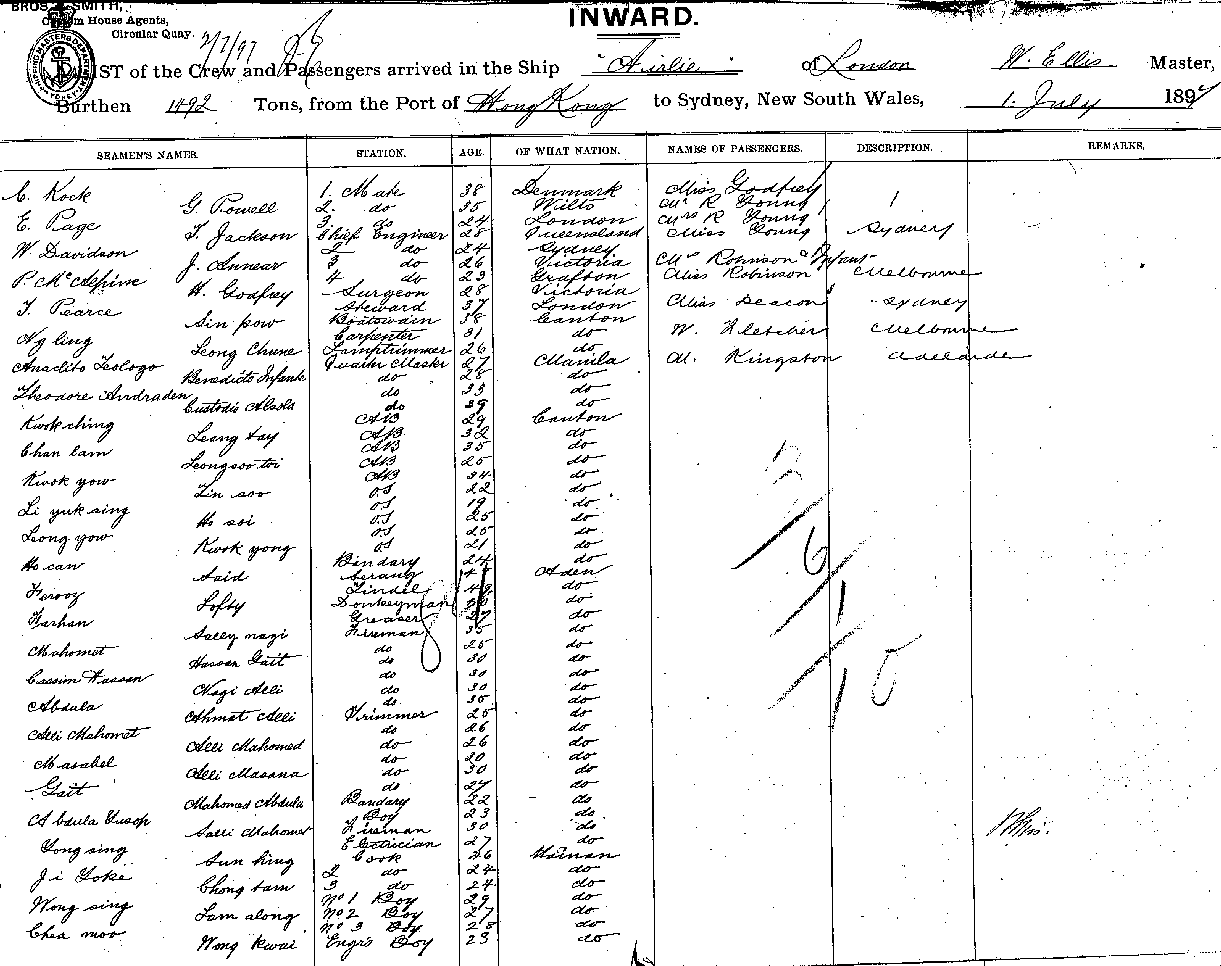 BROS. & SMITH,
Custom House Agents,
Circular Quay.
2/7/97
INWARD.
LIST of the Crew and Passengers arrived in the Ship "Airlie" of London W. Ellis Master,
Burthen 1492 Tons, from the Port of Hong Kong to Sydney, New South Wales, 1. July 1897
SEAMEN'S NAMES. STATION. AGE. OF WHAT NATION. NAMES OF PASSENGERS. DESCRIPTION. REMARKS.
C. Kock 1. Mate 38 Denmark Miss Godfrey
G. Powell 2. do 35 Wilts Mr R Young
E. Page 3. do 24 London Mrs R Young
T. Jackson Chief Engineer 28 Queensland Miss Young Sydney
W. Davidson 2 do 24 Sydney
J. Annear 3 do 26 Victoria Mrs Robinson & Infant
P. McAlpine 4 do 23 Grafton Miss Robinson Melbourne
H. Godfrey Surgeon 28 Victoria
T. Pearce Steward 37 London Miss Deacon Sydney
Sin pow Boatswain 38 Canton
Ng ling Carpenter 31 do W. Fletcher Melbourne
Leong Chune Lamptrimmer 26 do
Anaclito Teologo Quarter Master 27 Manila M. Kingston Adelaide
Benedicto Infante do 28 do
Theodore Andraden do 33 do
Custodio Alsola do 39 do
Kwok ching AB 29 Canton
Leong tay AB 32 do
Chan lam AB 35 do
Leong soo toi AB 25 do
Kwok yow AB 34 do
Lin soo OS 22 do
Li yuk sing OS 19 do
Ho soi OS 25 do
Leong yow OS 25 do
Kwok yong OS 21 do
Ho can Bandary 24 do
Said Serang Aden
Ferooz Tindel 48 do
Lofty Donkeyman do
Farhan Greaser 27 do
Salley nagi Fireman 35 do
Mahomet do 25 do
Hassan Gait do 30 do
Cassim Hassan do 30 do
Nagi Alli do 30 do
Abdula do 35 do
Ahmat Alli Trimmer 25 do
Alli Mahomet do 26 do
Alli Mahomed do 26 do
Masabel do 30 do
Alli Masana do 30 do
Gait do 27 do
Mahomed Abdula Bandary 22 do
Abdula Yusop Boy 23 do
Salli Mahomet Fireman 30 do
Yong sing Electrician 27 do
Sun king Cook 26 Hainan
Ji Yoke 2 do 24 do
Chong tam 3 do 24 do
Wong sing No 1 Boy 29 do
Lam along No 2 Boy 27 do
Chea moo No 3 Boy 28 do
Wong kwai Engrs Boy 23 do